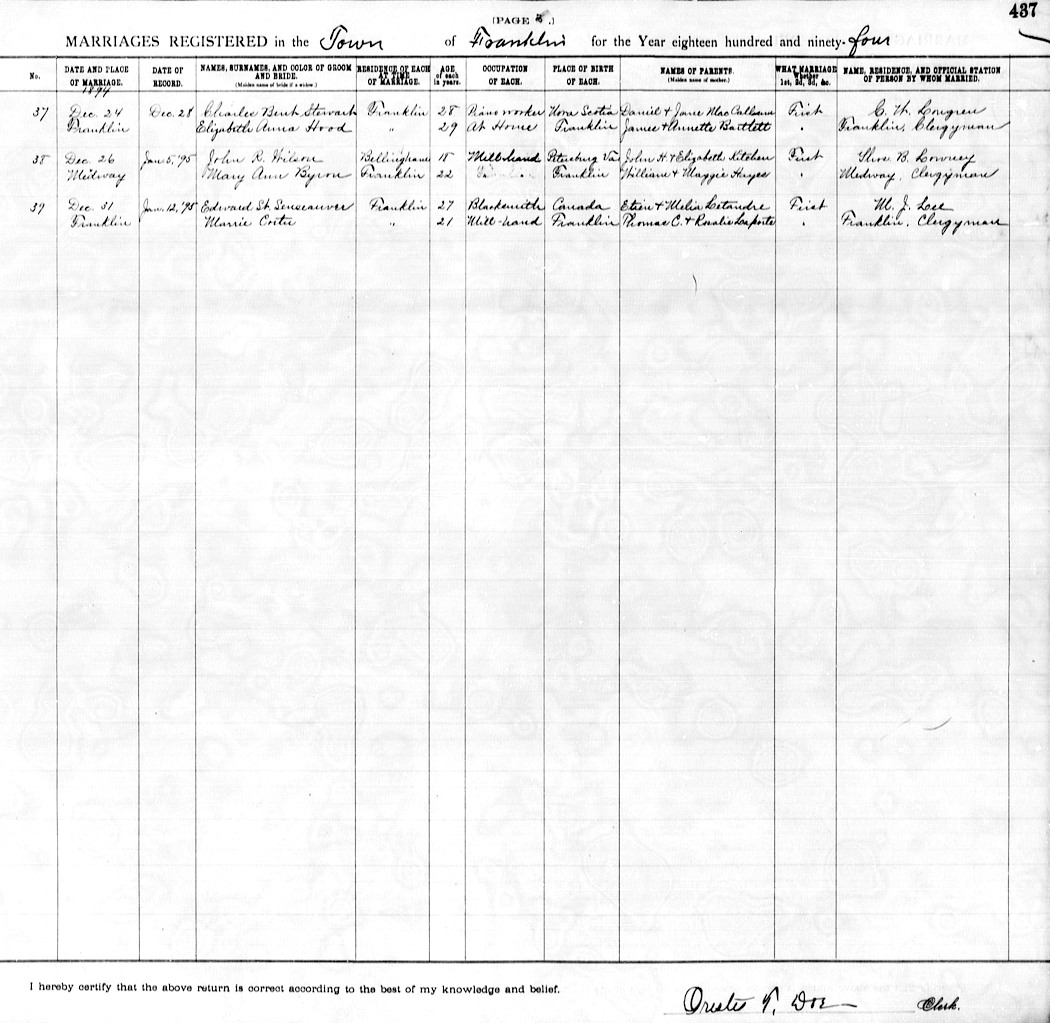 437
(PAGE .)
MARRIAGES REGISTERED in the Town of Franklin for the Year eighteen hundred and ninety-four
No. DATE AND PLACE OF MARRIAGE. DATE OF RECORD. NAMES, SURNAMES, AND COLOR OF GROOM AND BRIDE. (Maiden name of bride if a widow.) RESIDENCE OF EACH AT TIME OF MARRIAGE. AGE of each in years. OCCUPATION OF EACH. PLACE OF BIRTH OF EACH. NAMES OF PARENTS. (Maiden name of mother.) WHAT MARRIAGE Whether 1st, 2d, 3d, &c. NAME, RESIDENCE, AND OFFICIAL STATION OF PERSON BY WHOM MARRIED.
1894
37 Dec. 24 Dec. 28 Charles Bent Stewart Franklin 28 Piano worker Nova Scotia Daniel & Jane MacCallum First C. W. Longren
Franklin Elizabeth Anna Hood " 29 At Home Franklin James & Annette Bartlett " Franklin, Clergyman
38 Dec. 26 Jan. 5, '95 John R. Wilson Bellingham 18 Mill-hand Petersburg Va John H. & Elizabeth Kitchen First Thos. B. Lowney
Medway Mary Ann Byron Franklin 22 Franklin William & Maggie Hayes " Medway, Clergyman
39 Dec. 31 Jan. 12, '95 Edward St. Franklin 27 Blacksmith Canada & Melia First M. J. Lee
Franklin Marrie " 21 Mill-hand Franklin Thomas C. & Rosalie Laporte " Franklin, Clergyman
I hereby certify that the above return is correct according to the best of my knowledge and belief.
Orestes T. Doe Clerk.